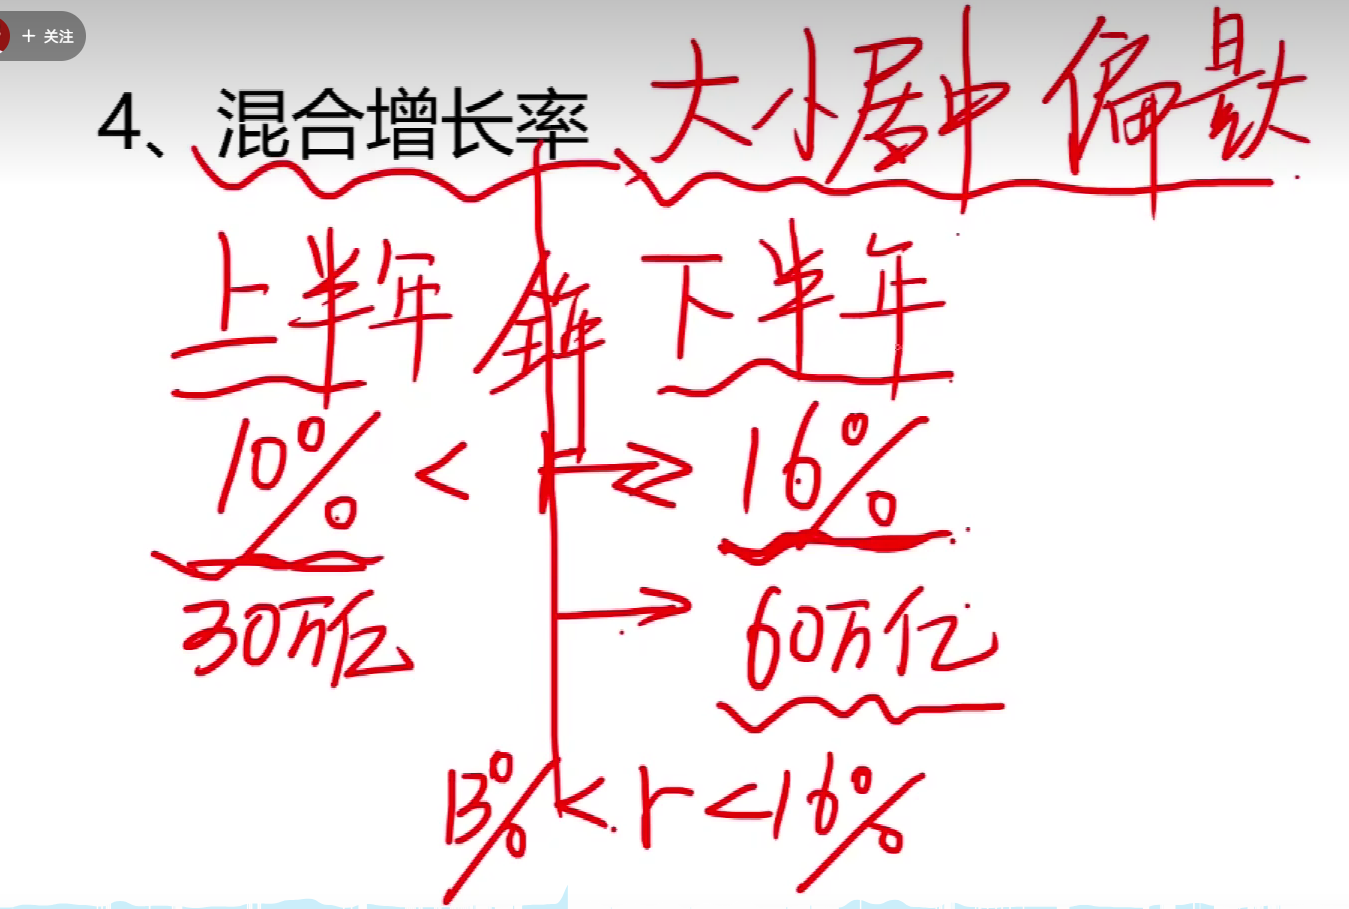 + 关注
4、混合增长率 大小居中 偏
上半年 全年 下半年
10% < r < 16%
30万亿 60万亿
13% < r < 16%